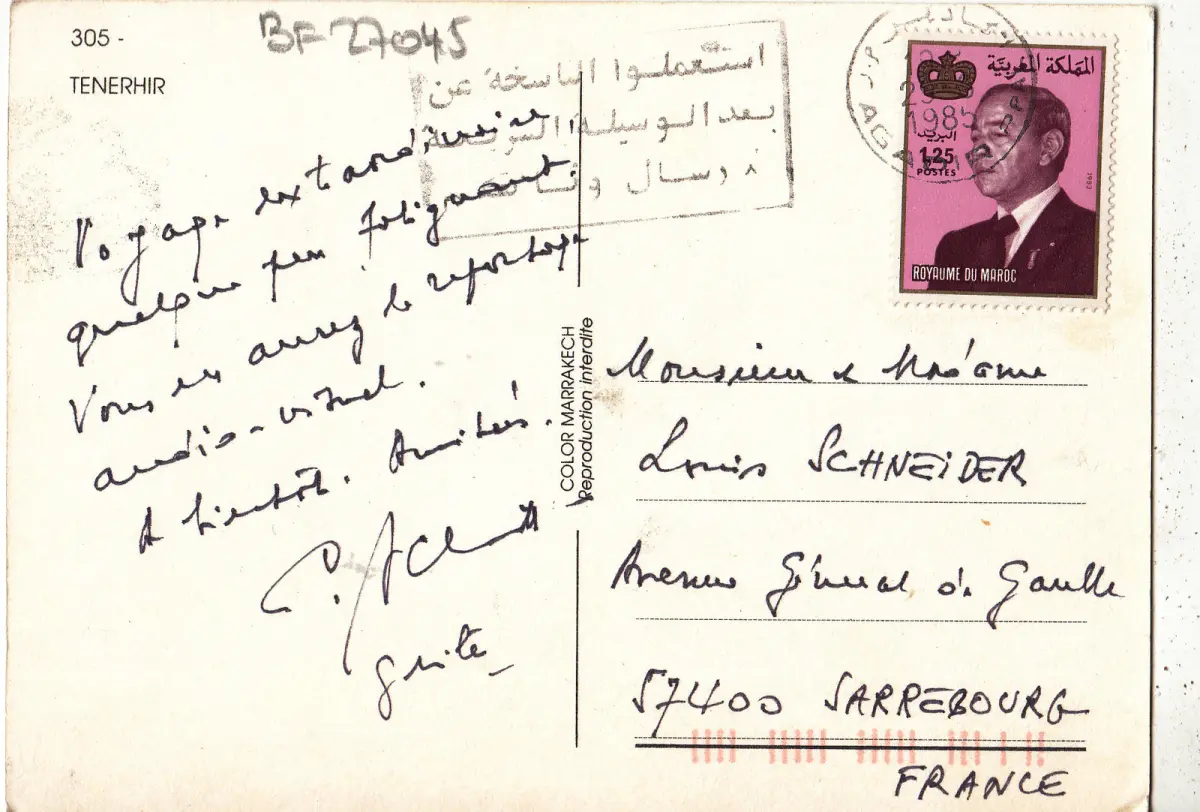 305 -
TENERHIR
BF 27045
استعملوا الناسخة عن
بعد الوسيلة السريعة
المملكة المغربية
1985
AGADIR
البريد
1.25
POSTES
1983
ROYAUME DU MAROC
Voyage extraordinaire
quelque peu fatiguant.
Vous en aurez le reportage
audio-visuel.
A bientôt. Amitiés.
COLOR MARRAKECH
Reproduction interdite
Monsieur & Madame
Louis SCHNEIDER
Avenue Général de Gaulle
57400 SARREBOURG
FRANCE